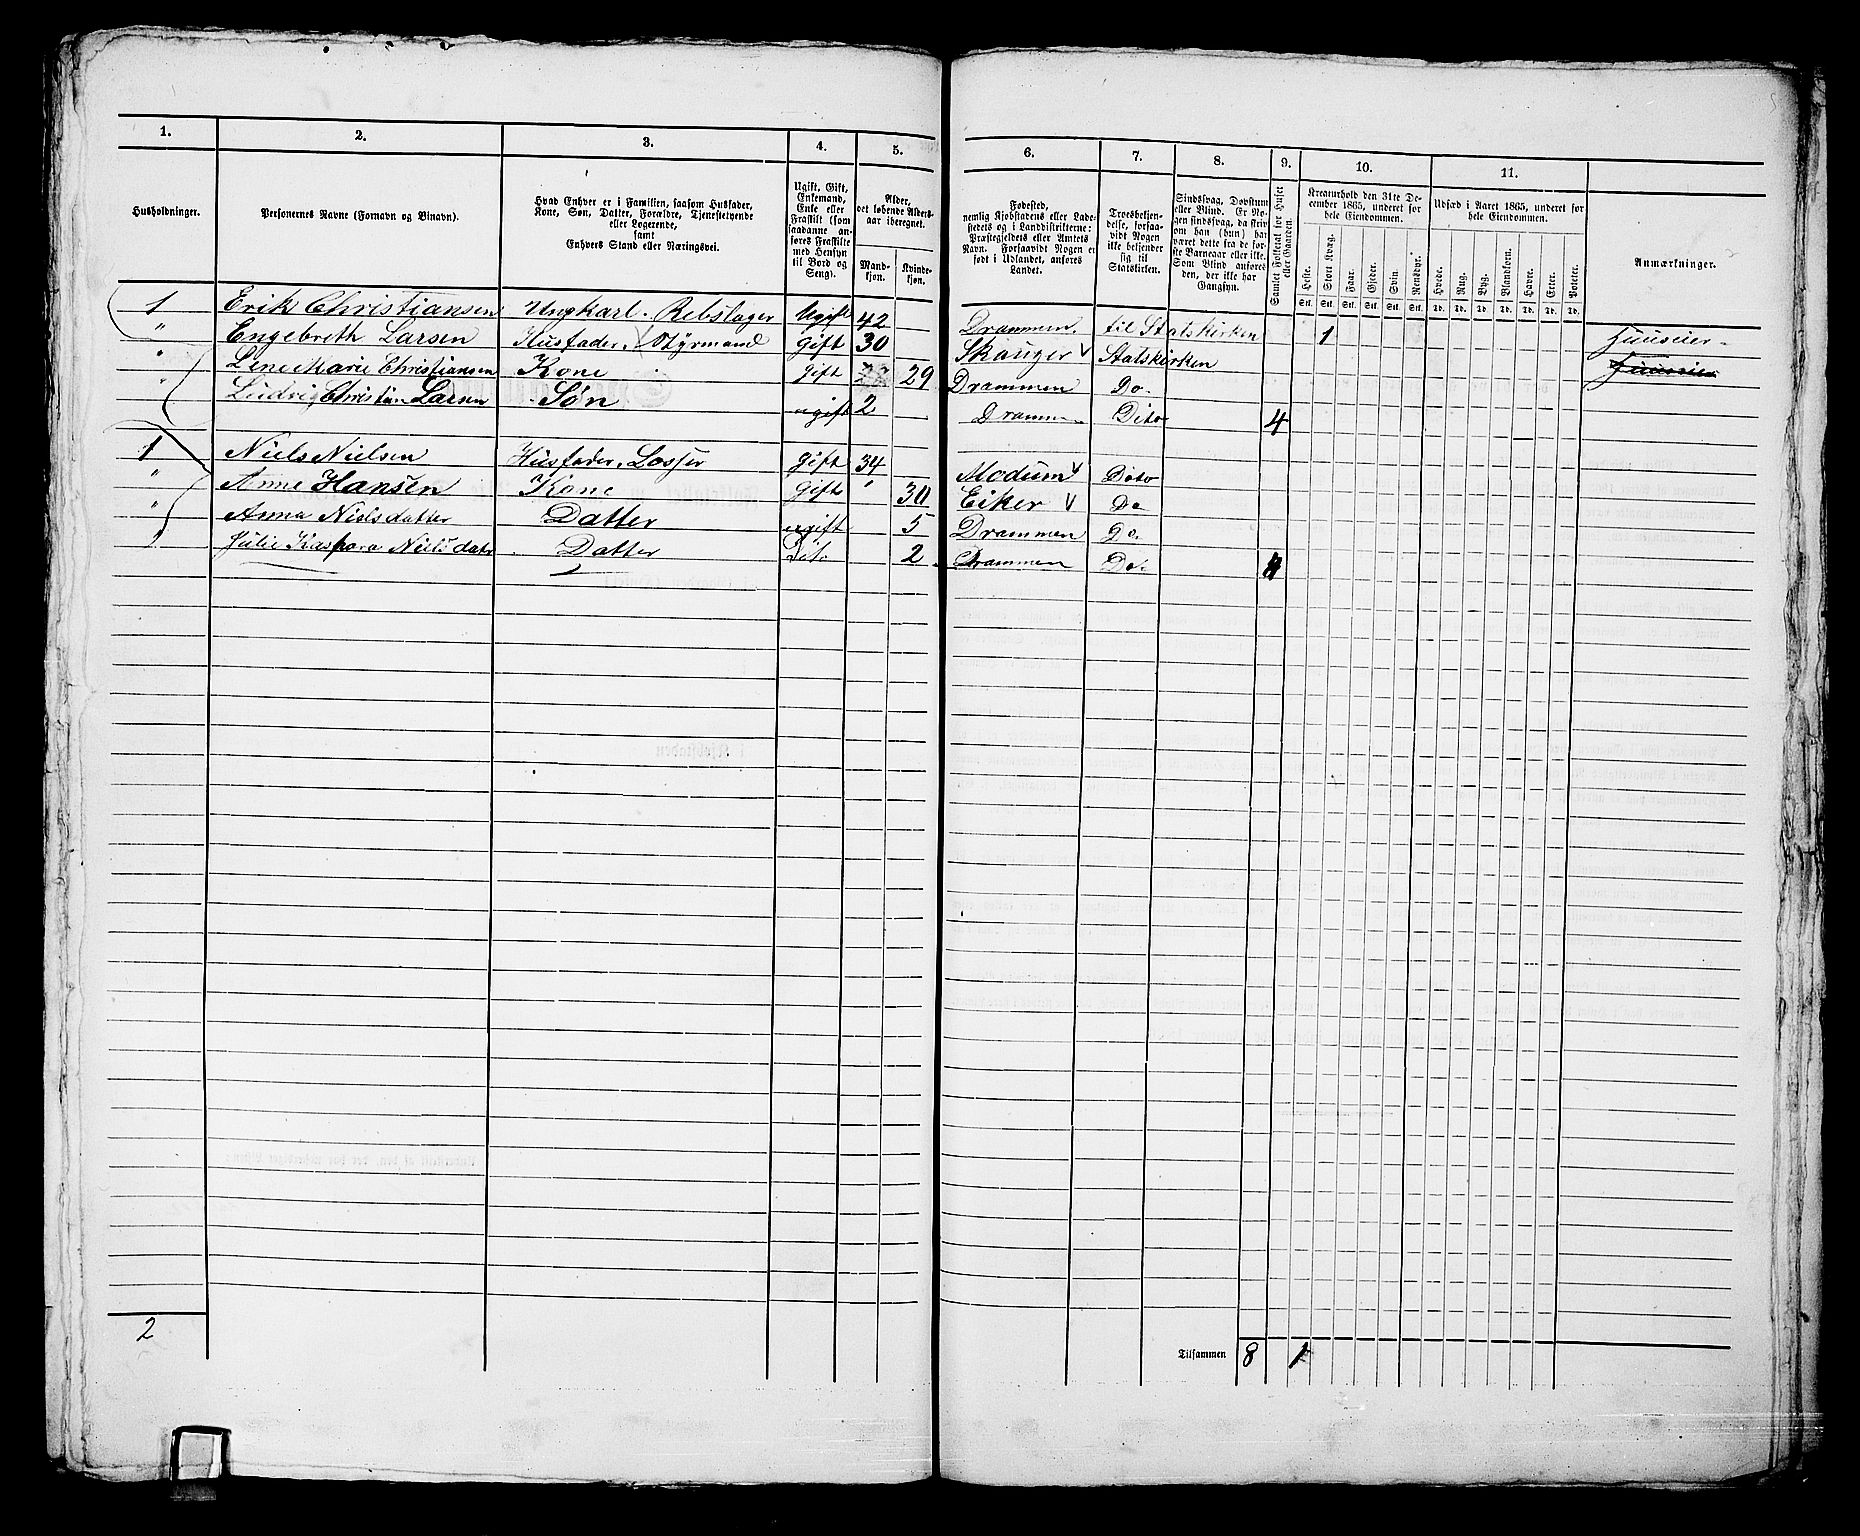 1. 2. 3. 4. 5. 6. 7. 8. 9. 10. 11.
Husholdninger.
Personernes Navne (Fornavn og Binavn).
Hvad Enhver er i Familien, saasom Husfader,
Kone, Søn, Datter, Forældre, Tjenestetyende
eller Logerende,
samt
Enhvers Stand eller Næringsvei.
Ugift, Gift,
Enkemand,
Enke eller
Fraskilt (som
saadanne an-
føres Fraskilte
med Hensyn
til Bord og
Seng).
Alder,
det løbende Alders-
aar iberegnet.
Mand-
kjøn.
Kvinde-
kjøn.
Fødested,
nemlig Kjøbstadens eller Lade-
stedets og i Landdistrikterne:
Præstegjeldets eller Amtets
Navn. Forsaavidt Nogen er
født i Udlandet, anføres
Landet.
Troesbekjen-
delse, forsaa-
vidt Nogen
ikke bekjender
sig til
Statskirken.
Sindssvag, Døvstum
eller Blind. Er No-
gen sindssvag, da skriv
om han (hun) har
været dette fra de før-
ste Barneaar eller ikke.
Som Blind anføres
den, der ikke har
Gangsyn.
Samlet Folketal for Huset
eller Gaarden.
Kreaturhold den 31te De-
cember 1865, underet for
hele Eiendommen.
Heste. Stort Kvæg. Faar. Gjeder. Svin. Rensdyr.
Stk. Stk. Stk. Stk. Stk. Stk.
Udsæd i Aaret 1865, underet for
hele Eiendommen.
Hvede. Rug. Byg. Blandkorn. Havre. Erter. Poteter.
Td. Td. Td. Td. Td. Td. Td.
Anmærkninger.
1 Erik Christiansen Ungkarl. Rebslager Ugift 42 Drammen. til Statskirken 1 Huuseier
" Engebreth Larsen Husfader, Styrmand gift 30 Skauger Statskirken
" Line Marie Christiansen Kone gift 29 Drammen Do
" Ludvig Christian Larsen Søn ugift 2 Dramm Dito 4
1 Niels Nielsen Husfader, Losser gift 34 Modum Dito
" Anne Hansen Kone gift " 30 Eiker Do
" Anna Nielsdatter Datter ugift 5 Drammen Do.
" Julie Kaspara Nielsdatr Datter Dito 2 Drammen Do. 4
2
Tilsammen 8 1